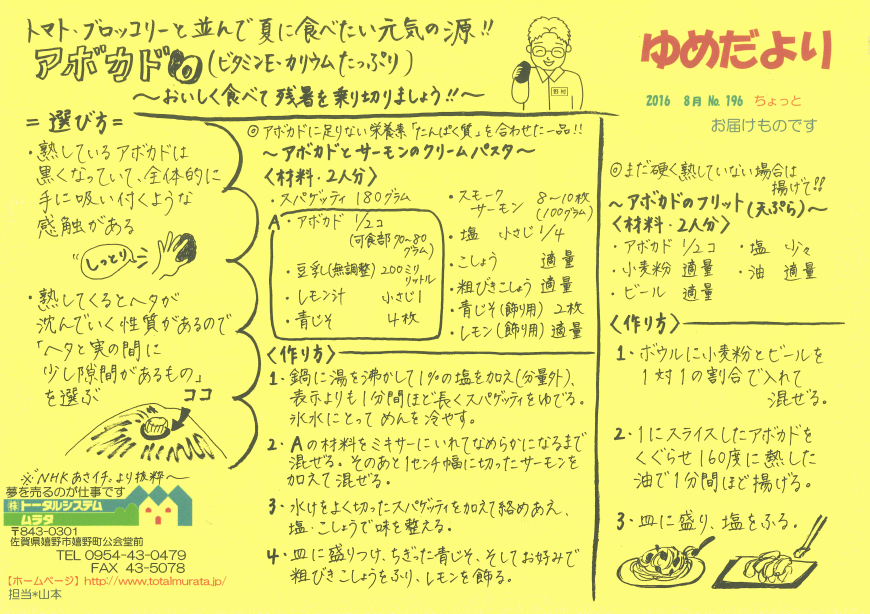 トマト・ブロッコリーと並んで夏に食べたい元気の源!!
アボカド(ビタミンE・カリウムたっぷり)
〜おいしく食べて残暑を乗り切りましょう!!〜
野村
ゆめだより
2016 8月 No.196 ちょっと
お届けものです
=選び方=
・熟しているアボカドは
黒くなっていて、全体的に
手に吸い付くような
感触がある
しっとり
・熟してくるとヘタが
沈んでいく性質があるので
「ヘタと実の間に
少し隙間があるもの」
を選ぶ
ココ
※NHKあさイチより抜粋〜
夢を売るのが仕事です
㈱トータルシステム
ムラタ
〒843-0301
佐賀県嬉野市嬉野町公会堂前
TEL 0954-43-0479
FAX 43-5078
【ホームページ】http://www.totalmurata.jp/
担当*山本
◎アボカドに足りない栄養素「たんぱく質」を合わせた一品!!
〜アボカドとサーモンのクリームパスタ〜
〈材料・2人分〉
・スパゲッティ 180グラム
A・アボカド 1/2コ
(可食部70〜80
グラム)
・豆乳(無調整) 200ミリ
リットル
・レモン汁 小さじ1
・青じそ 4枚
・スモーク
サーモン 8〜10枚
(100グラム)
・塩 小さじ1/4
・こしょう 適量
・粗びきこしょう 適量
・青じそ(飾り用) 2枚
・レモン(飾り用) 適量
〈作り方〉
1・鍋に湯を沸かして1%の塩を加え(分量外)、
表示よりも1分間ほど長くスパゲッティをゆでる。
氷水にとってめんを冷やす。
2・Aの材料をミキサーにいれてなめらかになるまで
混ぜる。そのあと1センチ幅に切ったサーモンを
加えて混ぜる。
3・水けをよく切ったスパゲッティを加えて絡めあえ、
塩・こしょうで味を整える。
4・皿に盛りつけ、ちぎった青じそ、そしてお好みで
粗びきこしょうをふり、レモンを飾る。
◎まだ硬く熟していない場合は
揚げて!!
〜アボカドのフリット(天ぷら)〜
〈材料・2人分〉
・アボカド 1/2コ ・塩 少々
・小麦粉 適量 ・油 適量
・ビール 適量
〈作り方〉
1・ボウルに小麦粉とビールを
1対1の割合で入れて
混ぜる。
2・1にスライスしたアボカドを
くぐらせ160度に熱した
油で1分間ほど揚げる。
3・皿に盛り、塩をふる。